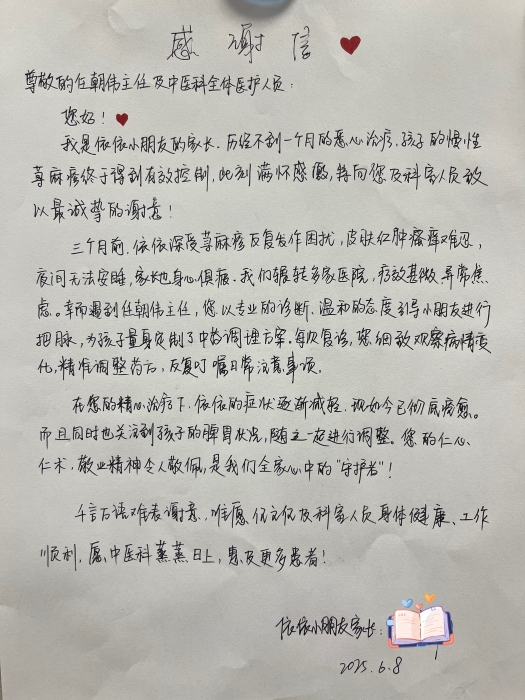 感谢信
尊敬的任朝伟主任及中医科全体医护人员：
您好！
我是依依小朋友的家长，历经不到一个月的悉心治疗，孩子的慢性
荨麻疹终于得到有效控制，此刻满怀感激，特向您及科室人员致
以最诚挚的谢意！
三个月前，依依深受荨麻疹反复发作困扰，皮肤红肿瘙痒难忍，
夜间无法安睡，家长也身心俱疲。我们辗转多家医院，疗效甚微，异常焦
虑。幸而遇到任朝伟主任，您以专业的诊断、温和的态度引导小朋友进行
把脉，为孩子量身定制了中药调理方案。每次复诊，您细致观察病情变
化，精准调整药方，反复叮嘱日常注意事项。
在您的精心治疗下，依依的症状逐渐减轻，现如今已彻底痊愈。
而且同时也关注到孩子的脾胃状况，随之一起进行调整。您的仁心、
仁术，敬业精神令人敬佩，是我们全家心中的“守护者”！
千言万语难表谢意，唯愿任主任及科室人员身体健康、工作
顺利，愿中医科蒸蒸日上，惠及更多患者！
依依小朋友家长：
2025.6.8